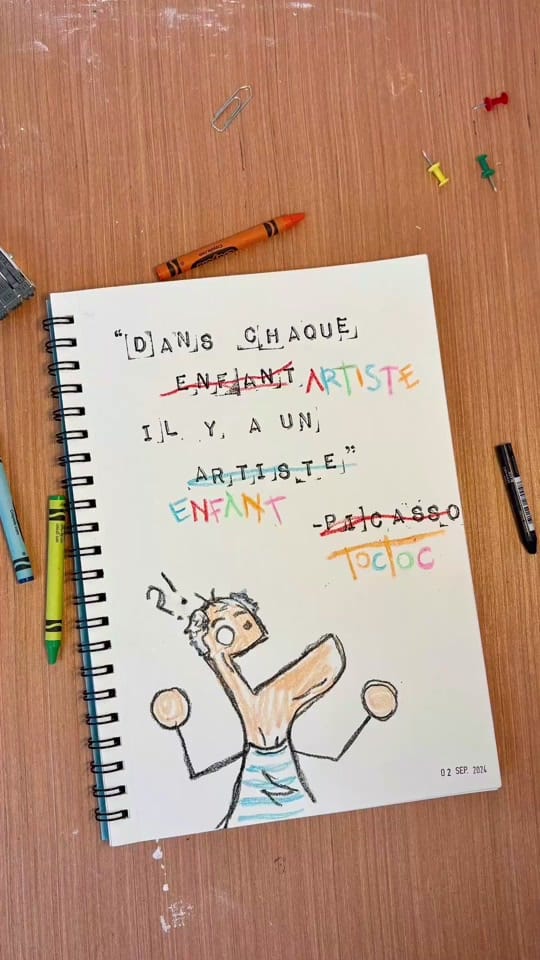 "DANS CHAQUE
ENFANT ARTISTE
IL Y A UN
ARTISTE"
ENFANT
-PICASSO
TOCTOC
?!
02 SEP. 2024